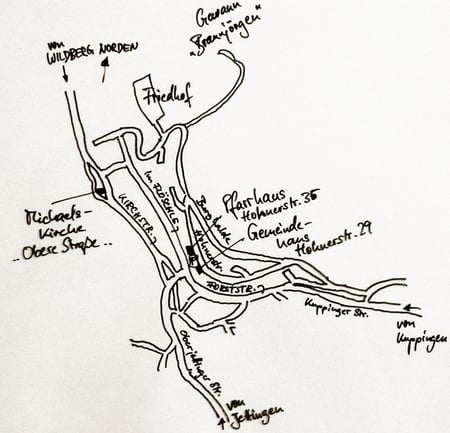 Garann
"Brennjörgen"
von
WILDBERG NORDEN
Friedhof
Michaels-
kirche
Obere Straße
KIRCHSTR.
Im FLÖSCHLE
Burghalde
Hohnerstr.
Pfarrhaus
Hohnerstr. 35
Gemeinde-
haus
Hohnerstr. 29
FORSTSTR.
Kuppinger Str.
von
Kuppingen
Oberjettinger Str.
von
Jettingen